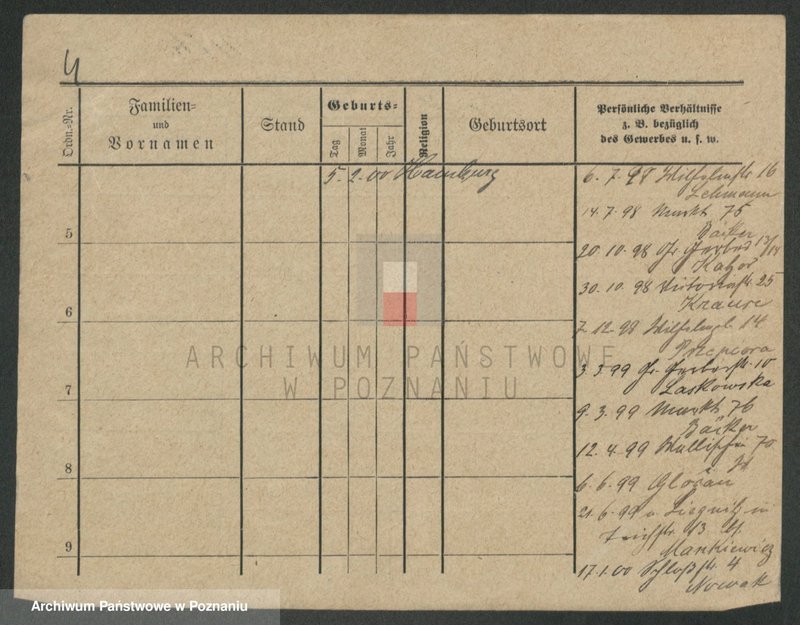 4
Ordn.-Nr.
Familien-
und
Vornamen
Stand
Geburts-
Tag
Monat
Jahr
Religion
Geburtsort
Persönliche Verhältnisse
z. B. bezüglich
des Gewerbes u. s. w.
5. 2.00 Hamburg
6. 7. 98 Wilhelmstr. 16
Lehmann
14. 7. 98 Markt 75
Bäcker
5
20. 10. 98 Gr. Gerberstr. 13/14
30. 10. 98 Viktoriastr. 25
Krause
6
7. 12. 98 Wilhelmpl. 14
3. 3. 99 Gr. Gerberstr. 10
Laskowska
7
9. 3. 99 Markt 76
Bäcker
12. 4. 99 Wallischei 70
8
6. 6. 99
21. 6. 99 v. Liegnitz in
Teichstr. 3
Mankiewicz
9
17. 1. 00 Schloßstr. 4
Nowak
ARCHIWUM PAŃSTWOWE
W POZNANIU
Archiwum Państwowe w Poznaniu